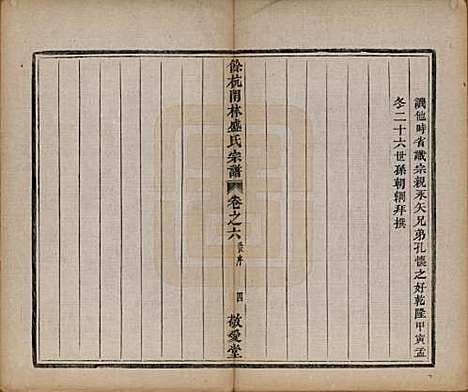 譌他時省識宗親永矢兄弟孔懷之好乾隆甲寅孟
冬二十六世孫朝朝拜撰
餘杭閒林盛氏宗譜 卷之六 四 敬愛堂